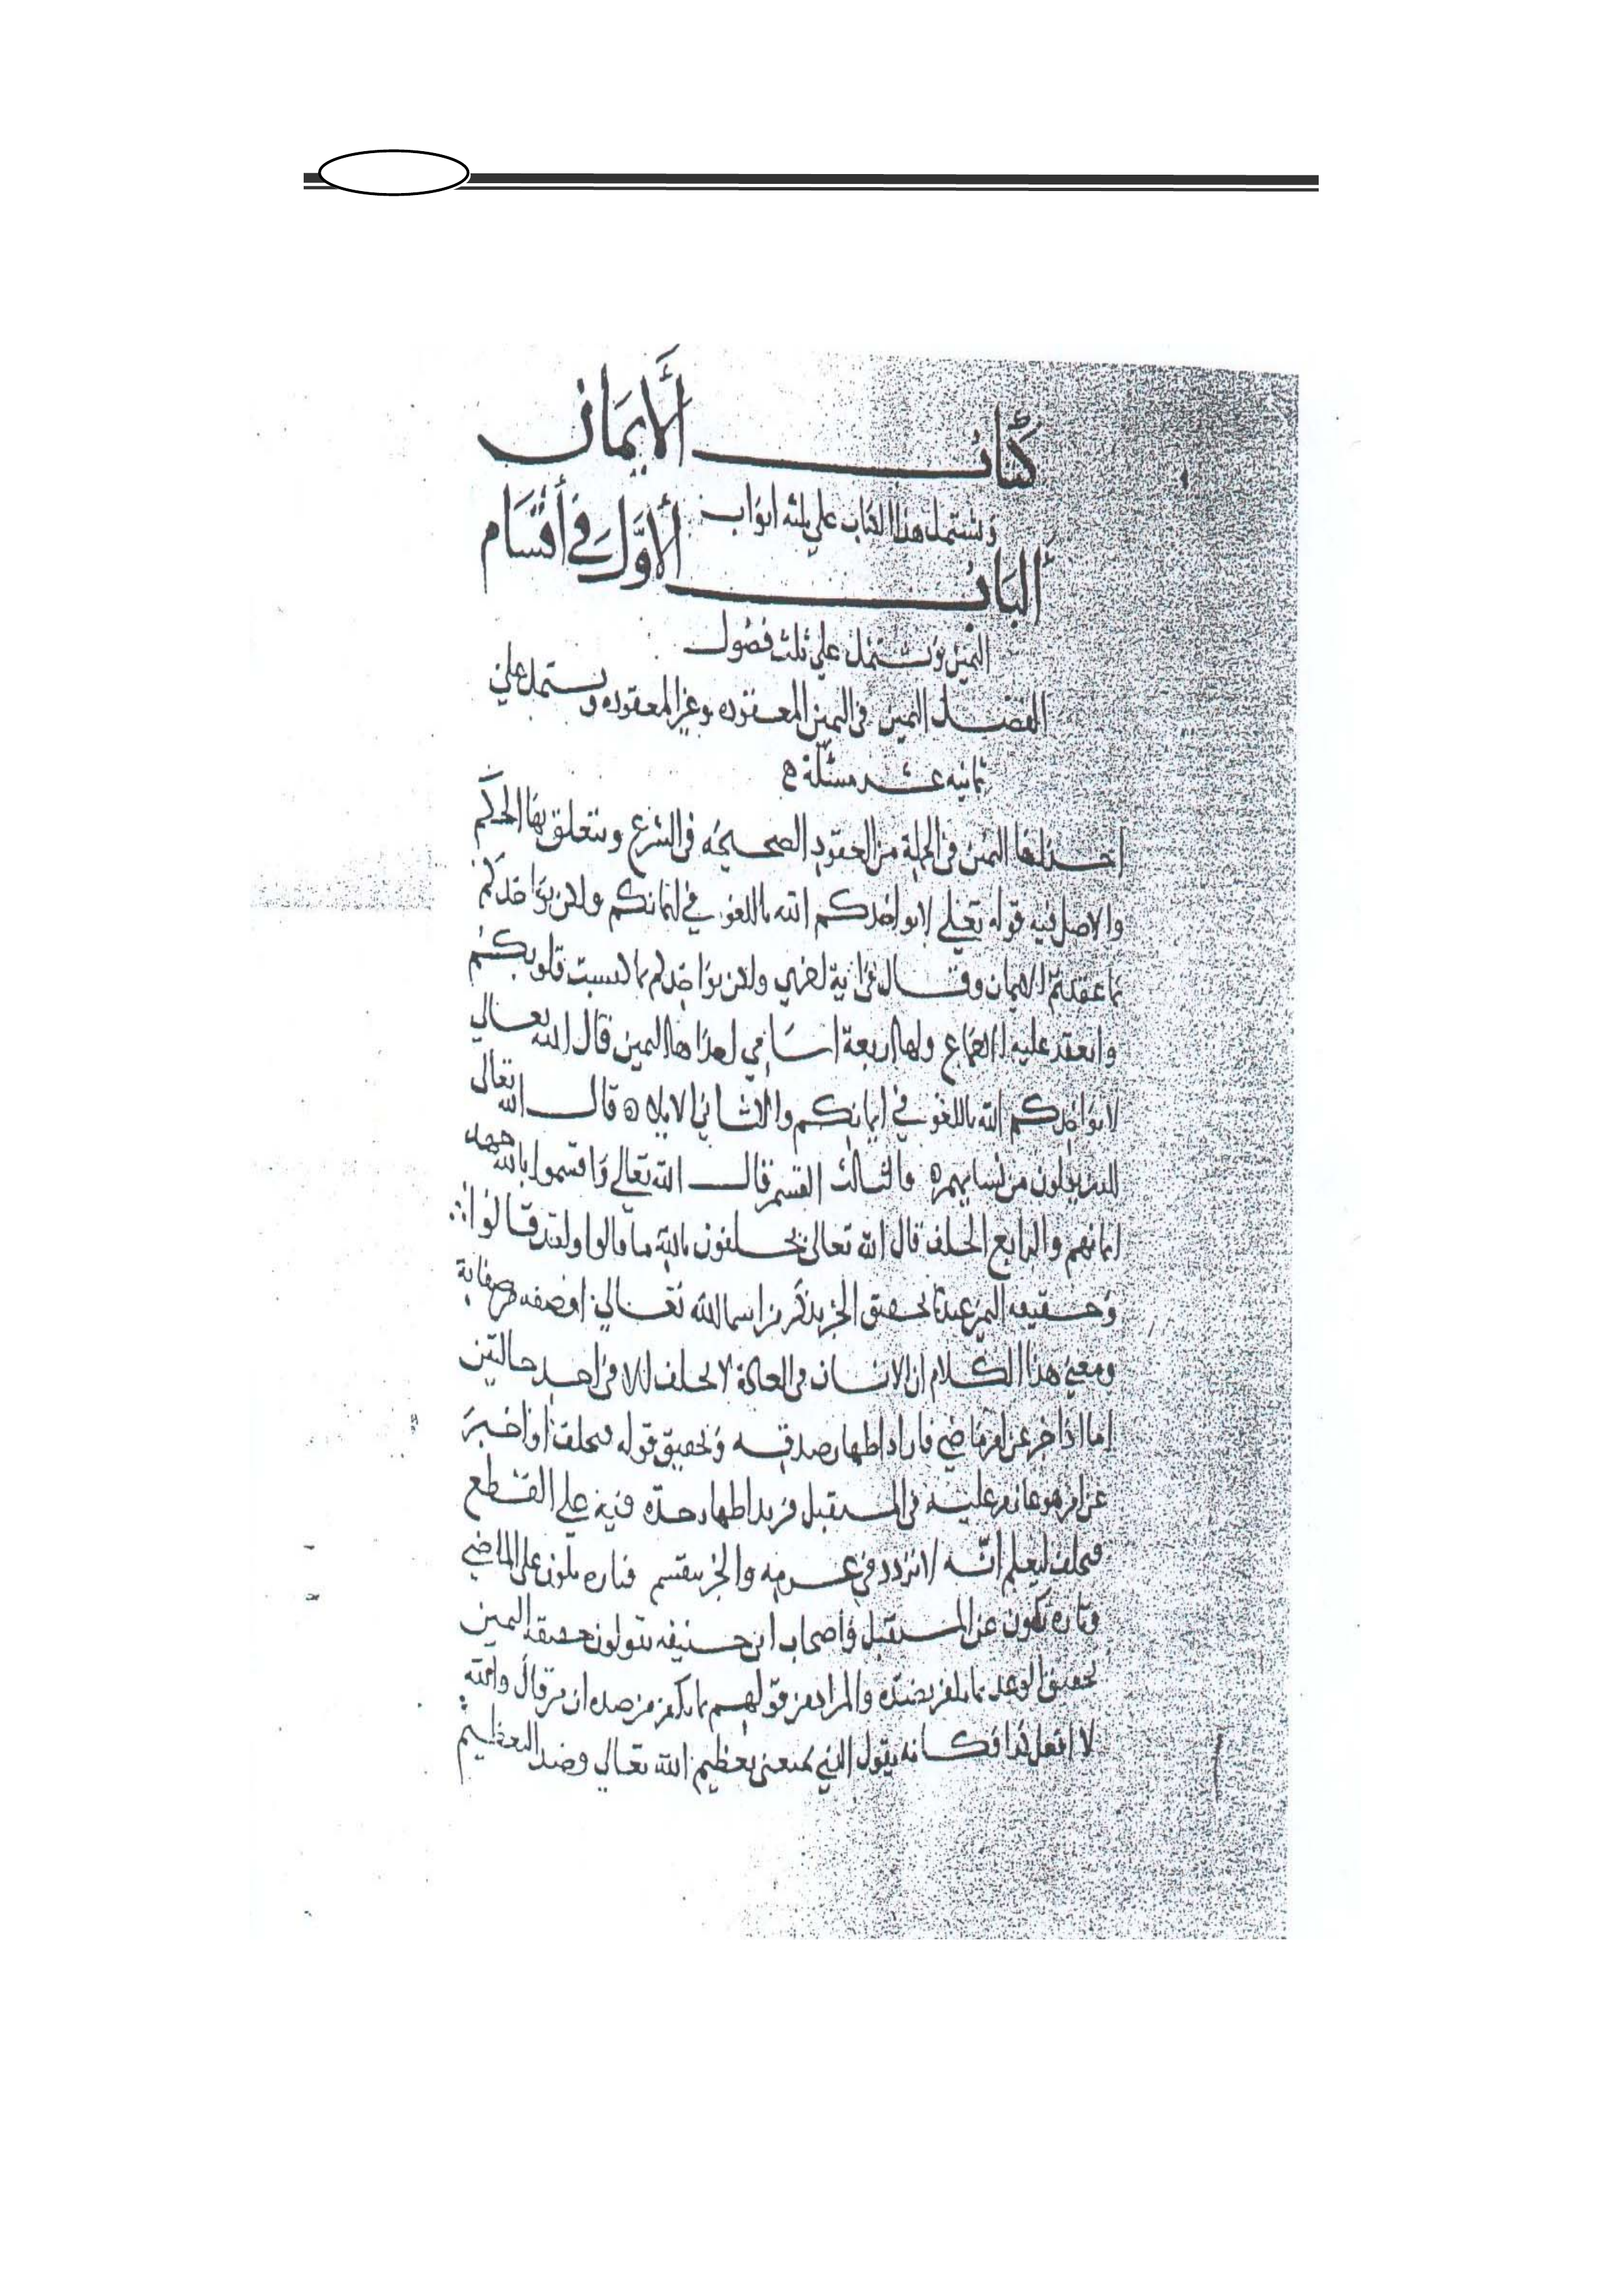 كتاب الأيمان
ويشتمل هذا الكتاب على ثلثه ابواب
الباب الأول في أقسام
اليمين ويشتمل على ثلث فصول
الفصل في اليمين المعقوده وغير المعقوده ويشتمل على
ثمانيه عشر مسئلة
احداها اليمين في الجملة من العقود الصحيحه في الشرع ويتعلق بها الحكم
والاصل فيه قوله تعلى لا يواخذكم الله باللغو في ايمانكم ولكن يؤاخذكم
بما عقدتم الايمان وقال في اية اخرى ولكن يواخذكم بما كسبت قلوبكم
وانعقد عليه الاجماع ولها اربعة اسامي احداها اليمين قال الله تعالى
لا يواخذكم الله باللغو في ايمانكم والثاني الايلاء قال الله تعالى
للذين يولون من نسايهم والثالث القسم قال الله تعالى واقسموا بالله جهد
ايمانهم والرابع الحلف قال الله تعالى يحلفون بالله ما قالوا ولقد قالوا
وحقيقه اليمين عندنا تحقيق الخبر بذكر من اسما الله تعالى او صفه من صفاته
ومعنى هذا الكلام ان الانسان في العادة لا يحلف الا في احد حالتين
إما اذا اخبر عن امر ماضي فاراد اظهار صدقه وتحقيق قوله فيحلف او اخبر
عن امر هو عازم عليه في المستقبل فيريد اظهار جده فيه على القطع
فيحلف ليعلم انه لا تردد في عزمه والخبر ينقسم فتاره يكون على الماضي
وتاره يكون عن المستقبل واصحاب ابي حنيفه يقولون حقيقه اليمين
تحقيق الوعد بما يكفر بضده والمراد من قولهم بما يكفر من ضده ان من قال والله
لا افعل كذا فكانه يقول بمعنى تعظيم الله تعالى وضد التعظيم